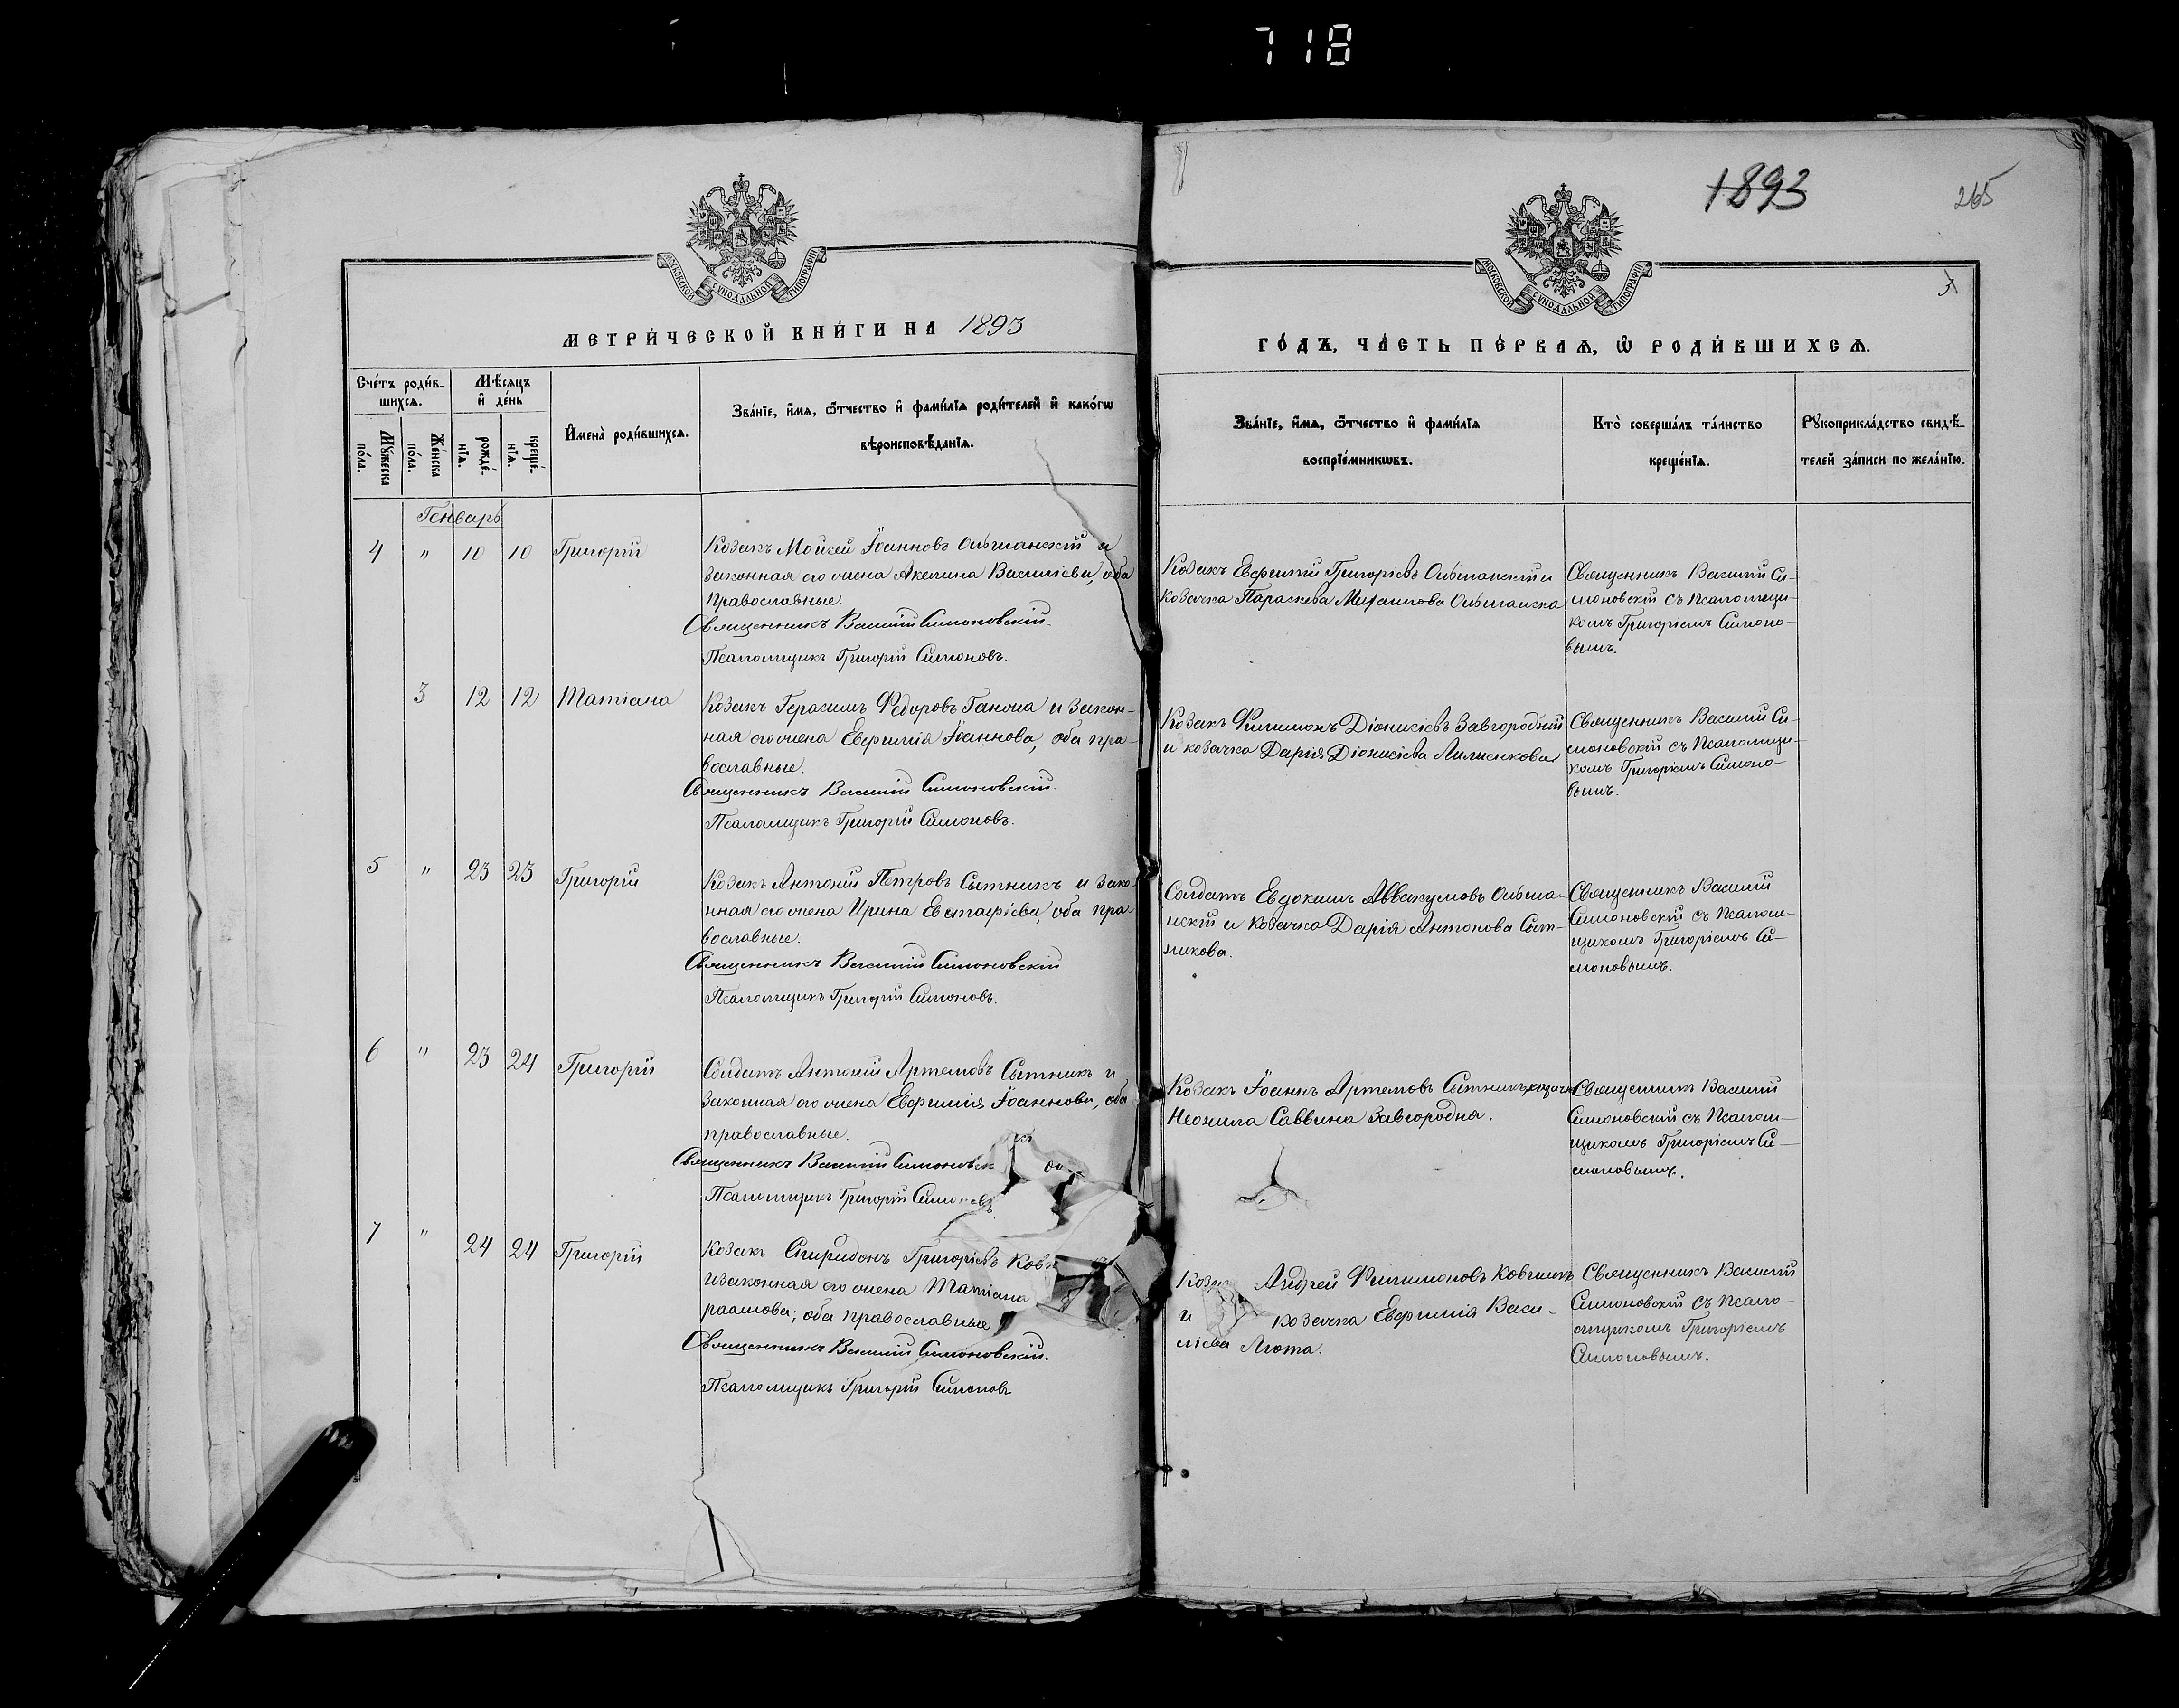 718
1893
265
3
МОСКОВСКОЙ СУНОДАЛЬНОЙ ТИПОГРАФІИ
МОСКОВСКОЙ СУНОДАЛЬНОЙ ТИПОГРАФІИ
МЕТРИ́ЧЕСКОЙ КНИ́ГИ НА 1893
ГО́ДЪ, ЧА́СТЬ ПЕ́РВАѦ, Ѽ РОДИ́ВШИХСѦ.
Сче́тъ роди́в-
шихсѧ.
Мꙋ́жеска
по́ла.
Же́нска
по́ла.
Мѣ́сѧцъ
и҆ де́нь
рожде́-
нїѧ.
креще́-
нїѧ.
И҆мена̀ роди́вшихсѧ.
Зва́нїе, и҆́мѧ, ѻ҆́тчество и҆ фами́лїѧ роди́телей и҆ како́гѡ
вѣроисповѣ́данїѧ.
Зва́нїе, и҆́мѧ, ѻ҆́тчество и҆ фами́лїѧ
воспрїе́мникѡвъ.
Кто̀ соверша́лъ та́инство
креще́нїѧ.
Рꙋкоприкла́дство свидѣ́-
телей за́писи по жела́нїю.
Генварь
4 " 10 10 Григорій
Козакъ Мойсей Іоанновъ Ольшанскій и
законная его жена Акелина Василіева, оба
православные.
Священникъ Василій Симоновскій.
Псаломщикъ Григорій Симоновъ.
Козакъ Евфимій Григоріевъ Ольшанскій и
козачка Параскева Михаилова Ольшанска
Священникъ Василій Си-
моновскій съ Псаломщи-
комъ Григоріемъ Симоно-
вымъ.
3 12 12 Татіана
Козакъ Герасимъ Федоровъ Ганжа и закон-
ная его жена Евфимія Іоаннова, оба пра-
вославные.
Священникъ Василій Симоновскій.
Псаломщикъ Григорій Симоновъ.
Козакъ Филимонъ Діонисіевъ Завгородній
и козачка Дарія Діонисіева
Священникъ Василій Си-
моновскій съ Псаломщи-
комъ Григоріемъ Симоно-
вымъ.
5 " 23 23 Григорій
Козакъ Антоній Петровъ Сытникъ и зако-
нная его жена Ирина Евстафіева, оба пра-
вославные.
Священникъ Василій Симоновскій
Псаломщикъ Григорій Симоновъ.
Солдатъ Евдокимъ Аввакумовъ Ольша-
нскій и козачка Дарія Антонова Сыт-
никова.
Священникъ Василій
Симоновскій съ Псалом-
щикомъ Григоріемъ Си-
моновымъ.
6 " 23 24 Григорій
Солдатъ Антоній Артемовъ Сытникъ и
законная его жена Евфимія Іоаннова, оба
православные.
Священникъ Василій Симоновск
Псаломщикъ Григорій Симоновъ
Козакъ Іоаннъ Артемовъ Сытникъ, козачка
Неонила Саввина Завгородня.
Священникъ Василій
Симоновскій съ Псалом-
щикомъ Григоріемъ Си-
моновымъ.
7 " 24 24 Григорій
Козакъ Спиридонъ Григоріевъ Ковш
и законная его жена Татіана
раамова; оба православные
Священникъ Василій Симоновскій.
Псаломщикъ Григорій Симоновъ
Козак Андрей Филимоновъ Ковшикъ
и козачка Евфимія Васи-
ліева Люта.
Священникъ Василій
Симоновскій съ Псало-
мщикомъ Григоріемъ
Симоновымъ.